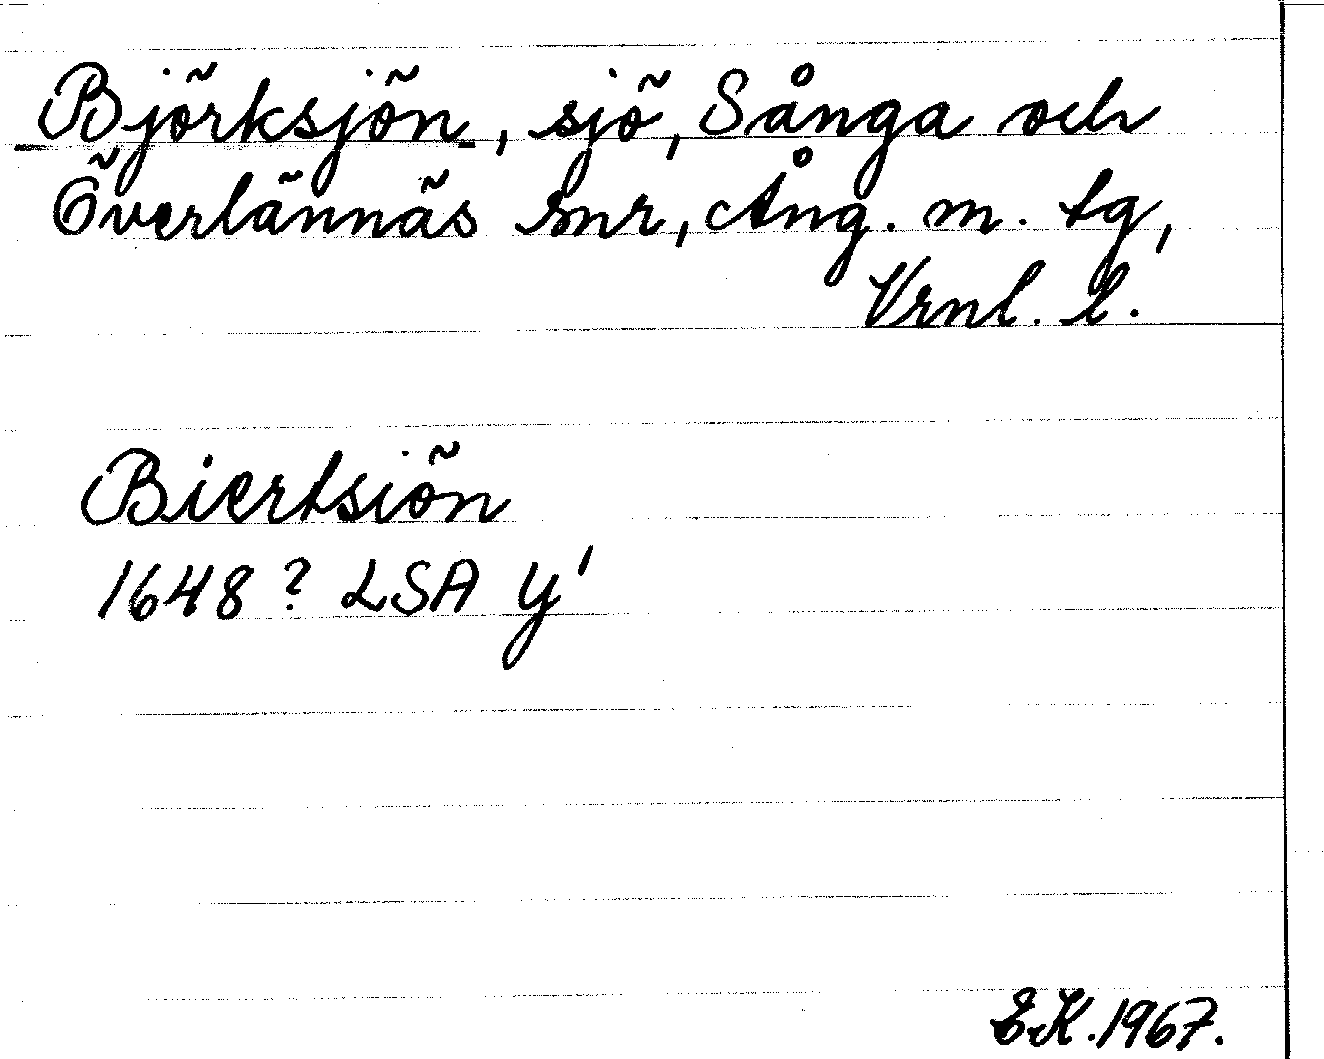 Björksjön, sjö, Sånga och
Överlännäs snr, Ång. m. tg,
Vrnl. l.
Biertsiön
1648? LSA Y'
E.K. 1967.